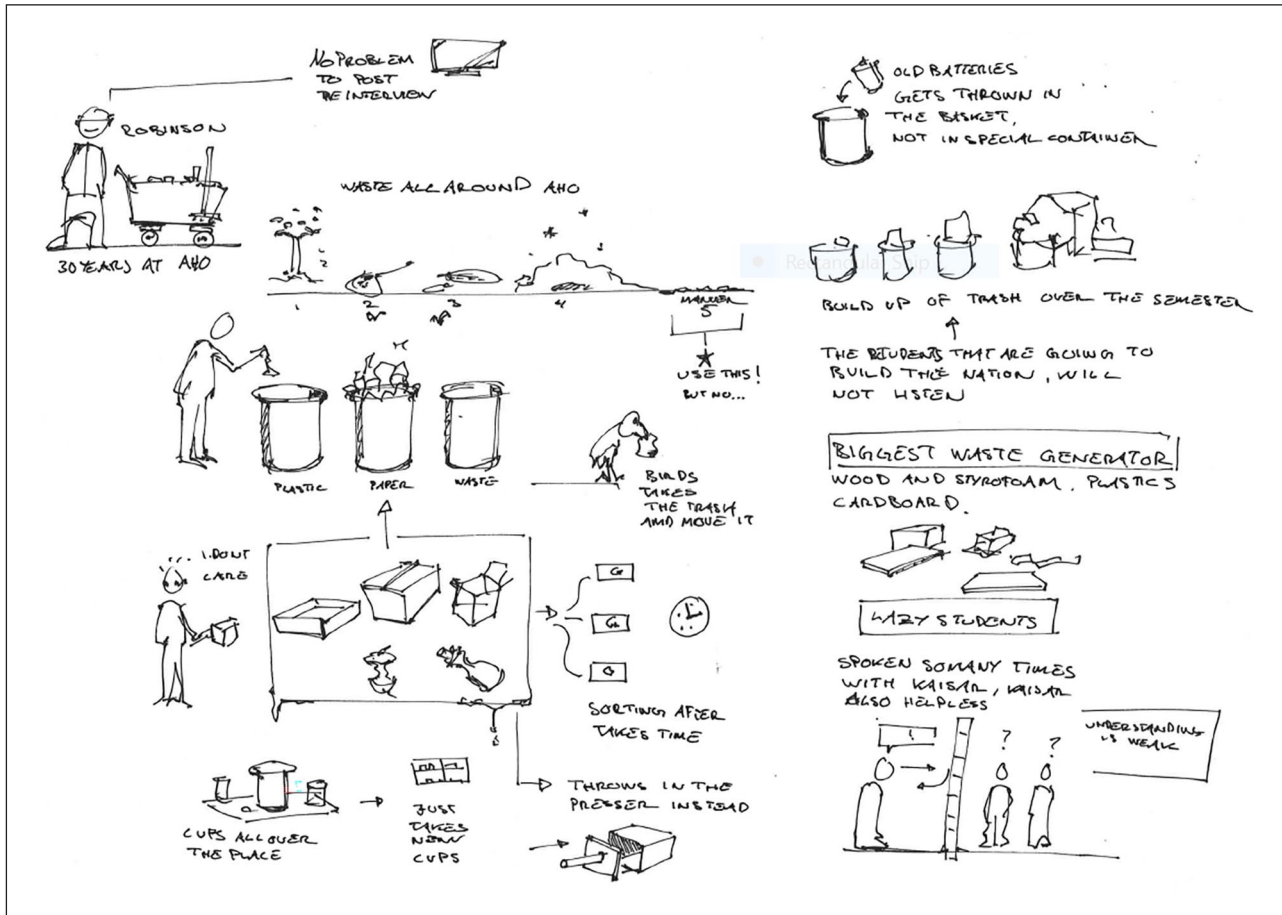 NO PROBLEM
TO POST
THE INTERVIEW
ROBINSON
30 YEARS AT AHO
WASTE ALL AROUND AHO
1
2
3
4
5
USE THIS!
BUT NO...
PLASTIC
PAPER
WASTE
BIRDS
TAKES
THE TRASH
AND MOVE IT
I DONT
CARE
G
G
G
SORTING AFTER
TAKES TIME
CUPS ALL OVER
THE PLACE
JUST
TAKES
NEW
CUPS
THROWS IN THE
PRESSER INSTEAD
OLD BATTERIES
GETS THROWN IN
THE BASKET,
NOT IN SPECIAL CONTAINER
Rectangular Snip
?
BUILD UP OF TRASH OVER THE SEMESTER
THE STUDENTS THAT ARE GOING TO
BUILD THE NATION, WILL
NOT LISTEN
BIGGEST WASTE GENERATOR
WOOD AND STYROFOAM, PLASTICS
CARDBOARD.
LAZY STUDENTS
SPOKEN SO MANY TIMES
WITH KAISAR, KAISAR
ALSO HELPLESS
!
? ?
UNDERSTANDING
IS WEAK